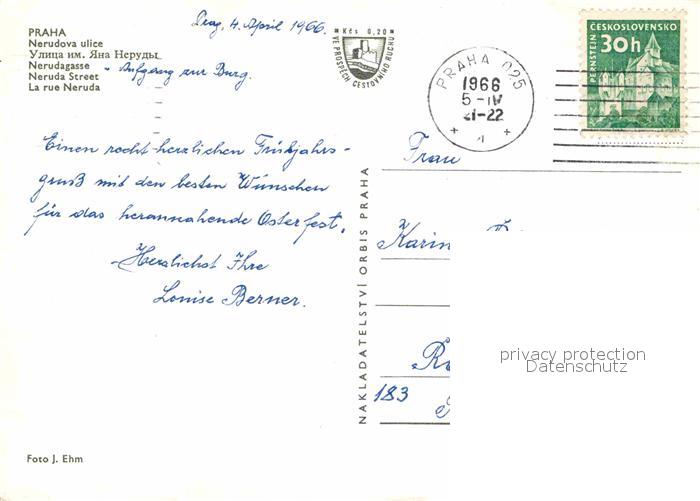 PRAHA
Nerudova ulice
Улица им. Яна Неруды
Nerudagasse
Neruda Street
La rue Neruda
Prag, 4. April 1966.
- Aufgang zur Burg.
Kčs 0,20
VE PROSPĚCH CESTOVNÍHO RUCHU
PRAHA 025
1966
5-IV
21-22
ČESKOSLOVENSKO
PERNŠTEJN
30h
Einen recht herzlichen Frühjahrs-
gruß mit den besten Wünschen
für das herannahende Osterfest.
Herzlichst Ihre
Louise Berner.
NAKLADATELSTVÍ ORBIS PRAHA
Frau
Karin
183
privacy protection
Datenschutz
Foto J. Ehm